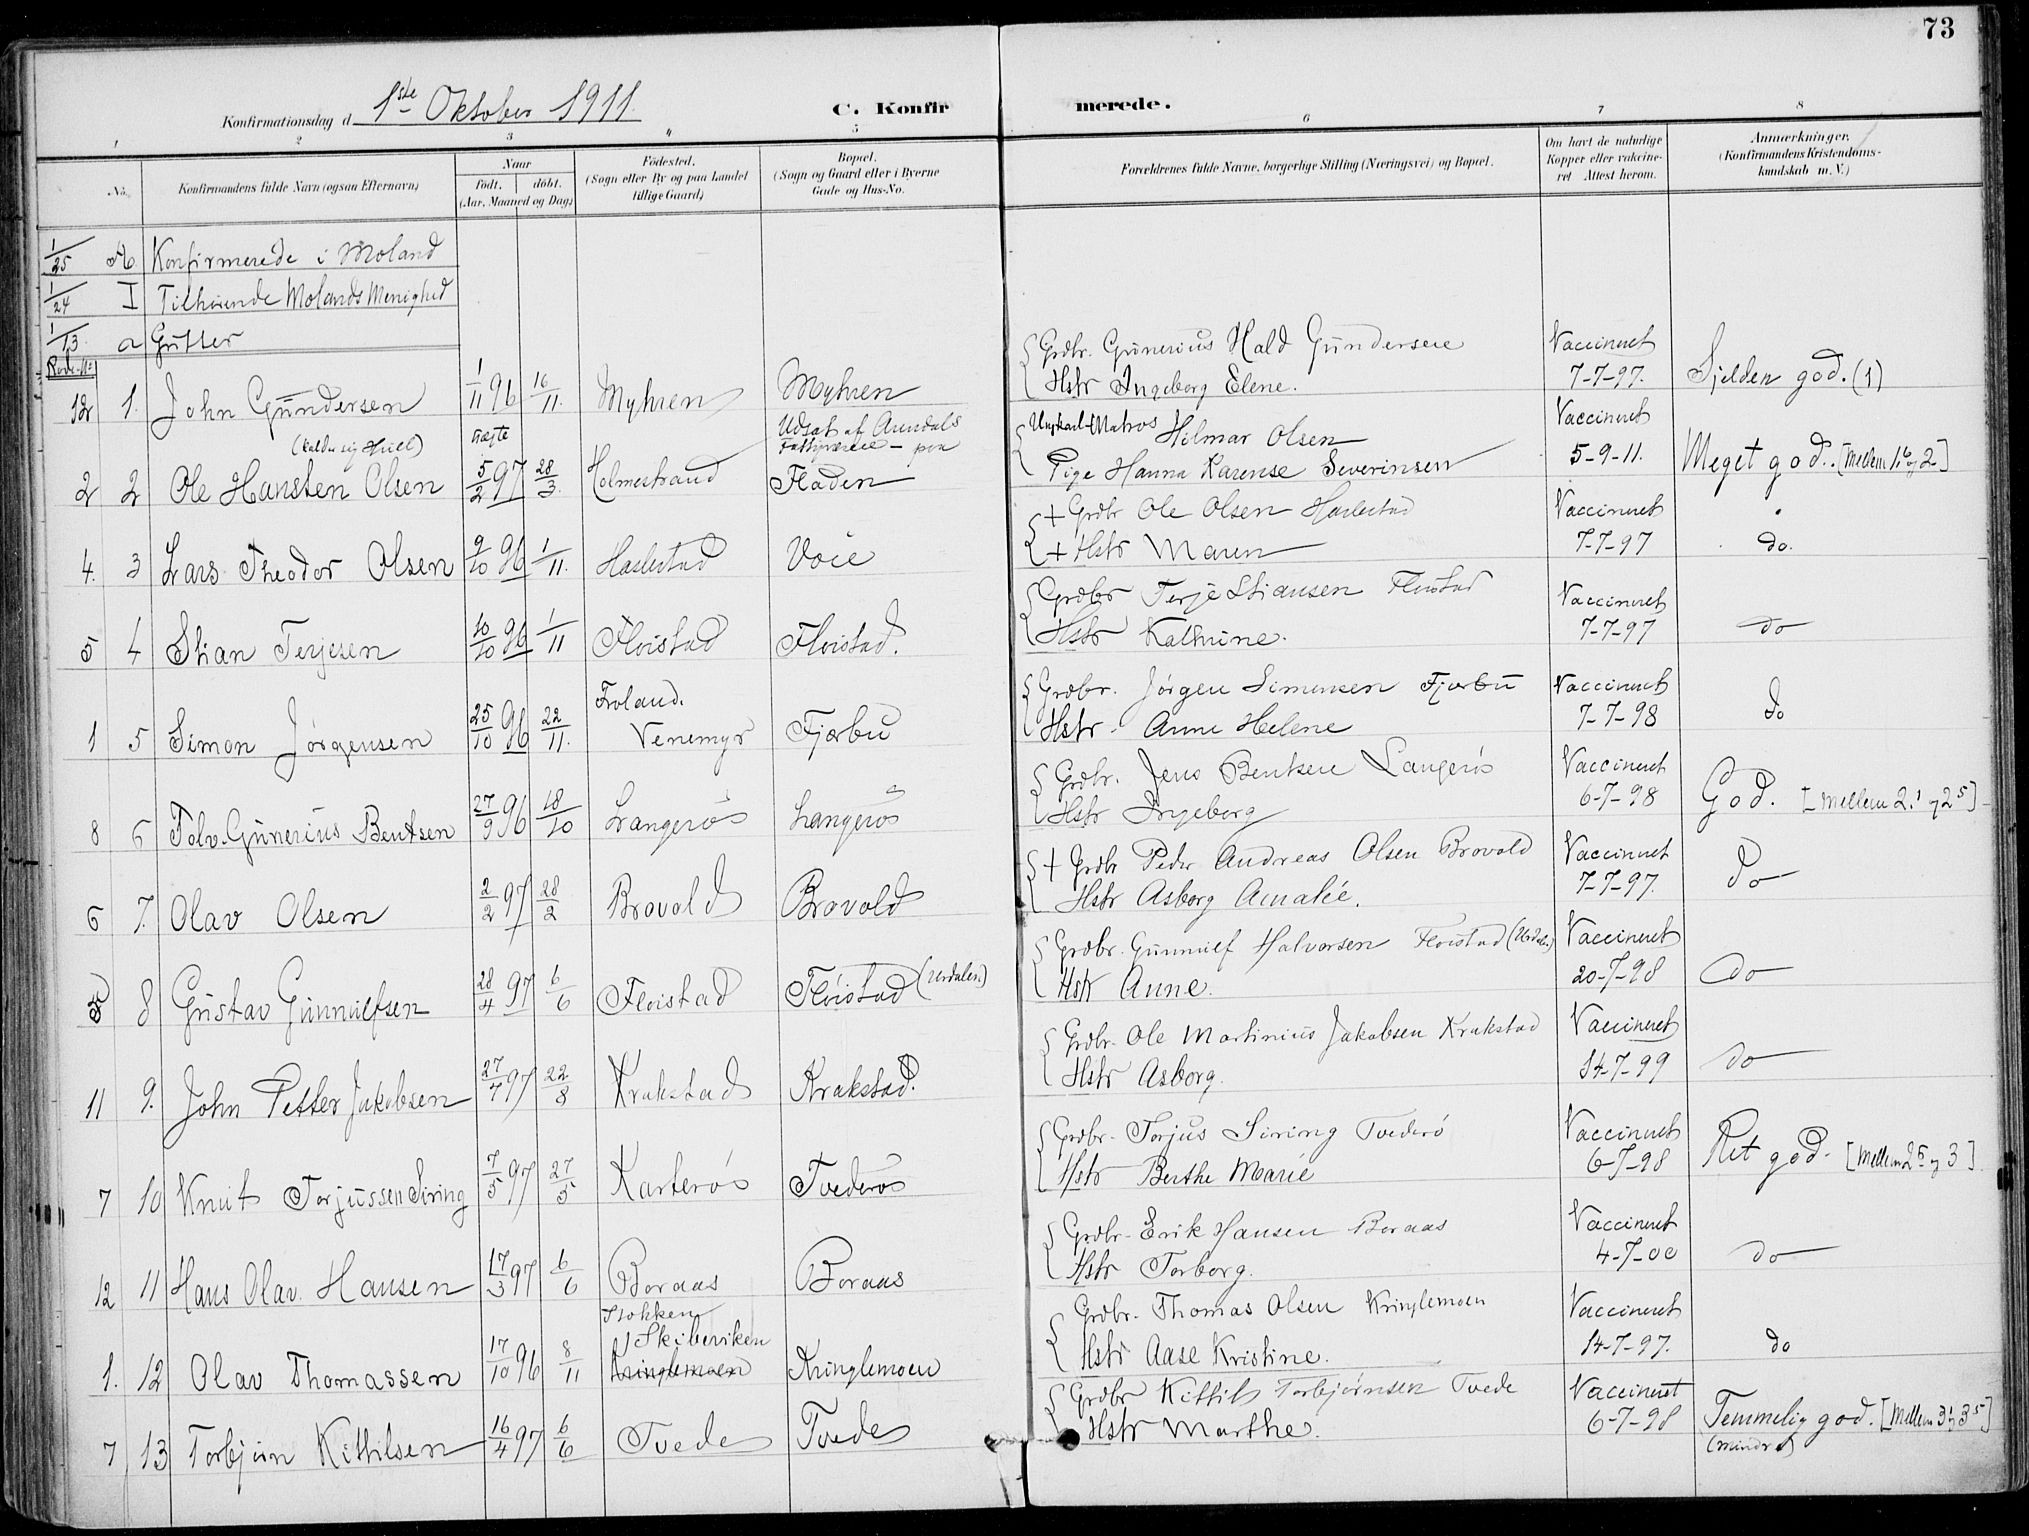 73
Konfirmationsdag d 1ste Oktober 1911.
C. Konfirmerede.
1 2 3 4 5 6 7 8
No. Konfirmandens fulde Navn (ogsaa Efternavn)
Naar født. døbt. (Aar, Maaned og Dag)
Fødested. (Sogn eller By og paa Landet tillige Gaard)
Bopæl. (Sogn og Gaard eller i Byerne Gade og Hus-No.
Forældrenes fulde Navne, borgerlige Stilling (Næringsvei) og Bopæl.
Om havt de naturlige Kopper eller vaccineret Attest herom.
Anmærkninger. (Konfirmandens Kristendomskundskab m. V.)
1/25 A Konfirmerede i Moland
1/24 I Tilhørende Molands Menighed
1/13 a Gutter
Rode-No
12 1. John Gundersen 1/11 96 16/11. Myhren Myhren
Grdbr. Gunerius Hald Gundersen
Hstr Ingeborg Elene.
Vaccineret 7-7-97. Sjelden god. (1)
2 2 Ole Hansten Olsen 5/2 97 28/3. Holmestrand
Udsat af Arendals Fattigvæsen - paa Fladen
Ungkarl-Matros Hilmar Olsen
Pige Hanna Karense Severinsen
Vaccineret 5-9-11. Meget god.
4. 3 Lars Theodor Olsen 9/10 96 1/11. Haslestad Voie
+ Grdbr Ole Olsen Haslestad
+ Hstr Maren
Vaccineret 7-7-97 do.
5 4 Stian Terjesen 10/10 96 1/11 Floistad Floistad.
Grdbr Terje Stiansen Floistad
Hstr Kathrine.
Vaccineret 7-7-97 do
1 5 Simon Jørgensen 25/10 96 22/11. Froland. Venemyr Fjærbu
Grdbr. Jørgen Simensen Fjærbu
Hstr. Anne Helene
Vaccineret 7-7-98 do
8 6 Tolv. Gunerius Bentsen 27/9 96 18/10 Langerøs Langerøs
Grdbr. Jens Bentsen Langerøs
Hstr Ingeborg
Vaccineret 6-7-98 God. [Mellem 2.1 og 2 5]
6 7. Olav Olsen 2/2 97 28/2 Brovold Brovold
+ Grdbr Peder Andreas Olsen Brovold
Hstr Asborg Amalie.
Vaccineret 7-7-97. do
8 Gustav Gunnulfsen 28/4 97 6/6 Floistad Fløistad (Urdalen)
Grdbr. Gunnulf Halvorsen Floistad (Urdalen)
Hstr Anne.
Vaccineret 20-7-98 do
11 9. John Petter Jakobsen 27/7 97 22/8 Krakstad Krakstad.
Grdbr. Ole Martinius Jakobsen Krakstad
Hstr Asborg.
Vaccineret 14-7-99 do
7 10 Knut Torjussen Siring 7/5 97 27/5 Karterøs Tvederøs
Grdbr. Torjus Siring Tvederø
Hstr Berthe Marie
Vaccineret 6-7-98 Ret god. [Mellem 2 5 og 3]
12 11 Hans Olav Hansen 17/3 97 6/6 Boraas Boraas
Grdbr. Erik Hansen Boraas
Hstr Torborg.
Vaccineret 4-7-00 do
1. 12 Olav Thomassen 17/10 96 8/11 Stokken Skibeviken Kringlemoen Kringlemoen
Grdbr. Thomas Olsen Kringlemoen
Hstr Aase Kristine.
Vaccineret 14-7-97. do
7 13 Torbjørn Kittilsen 16/4 97 6/6 Tvede Tvede
Grdbr Kittil Torbjørnsen Tvede
Hstr Marthe.
Vaccineret 6-7-98 Temmelig god. [Mellem 3 1 og 3 5]